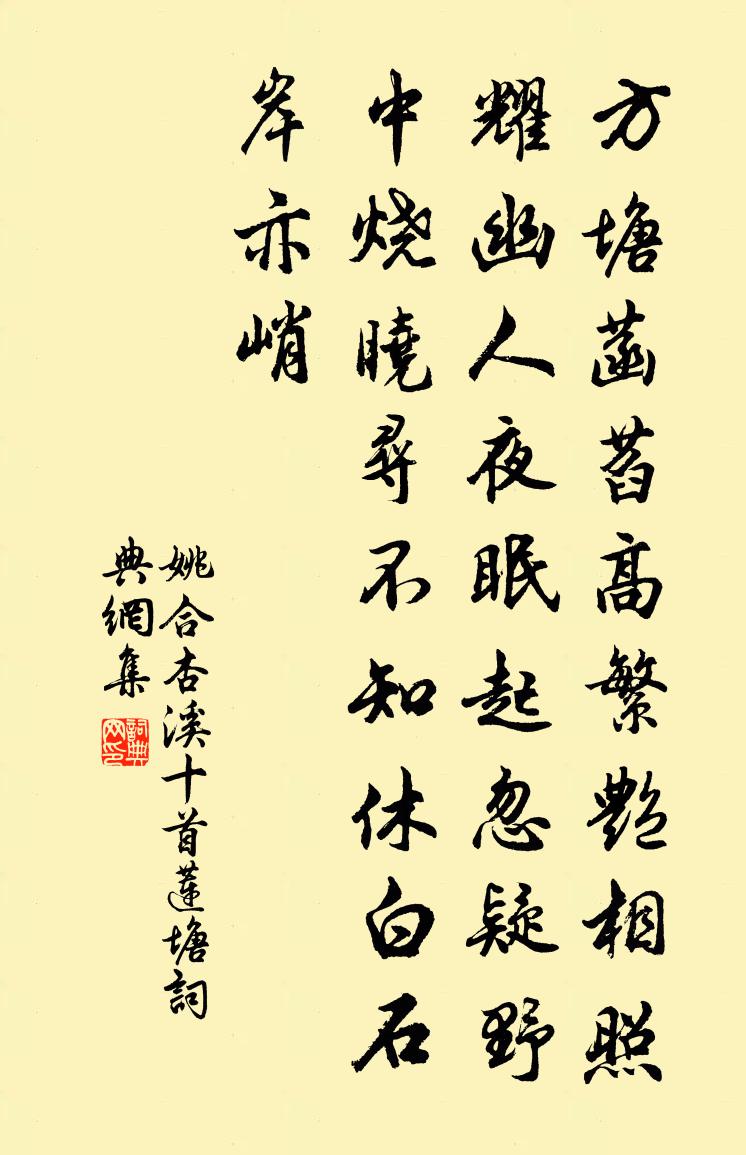 方塘菡萏高繁艷相照
耀幽人夜眠起忽疑野
中烧曉尋不知休白石
岸亦峭
姚合杏溪十首蓮塘詞
典網集
詞典
网印